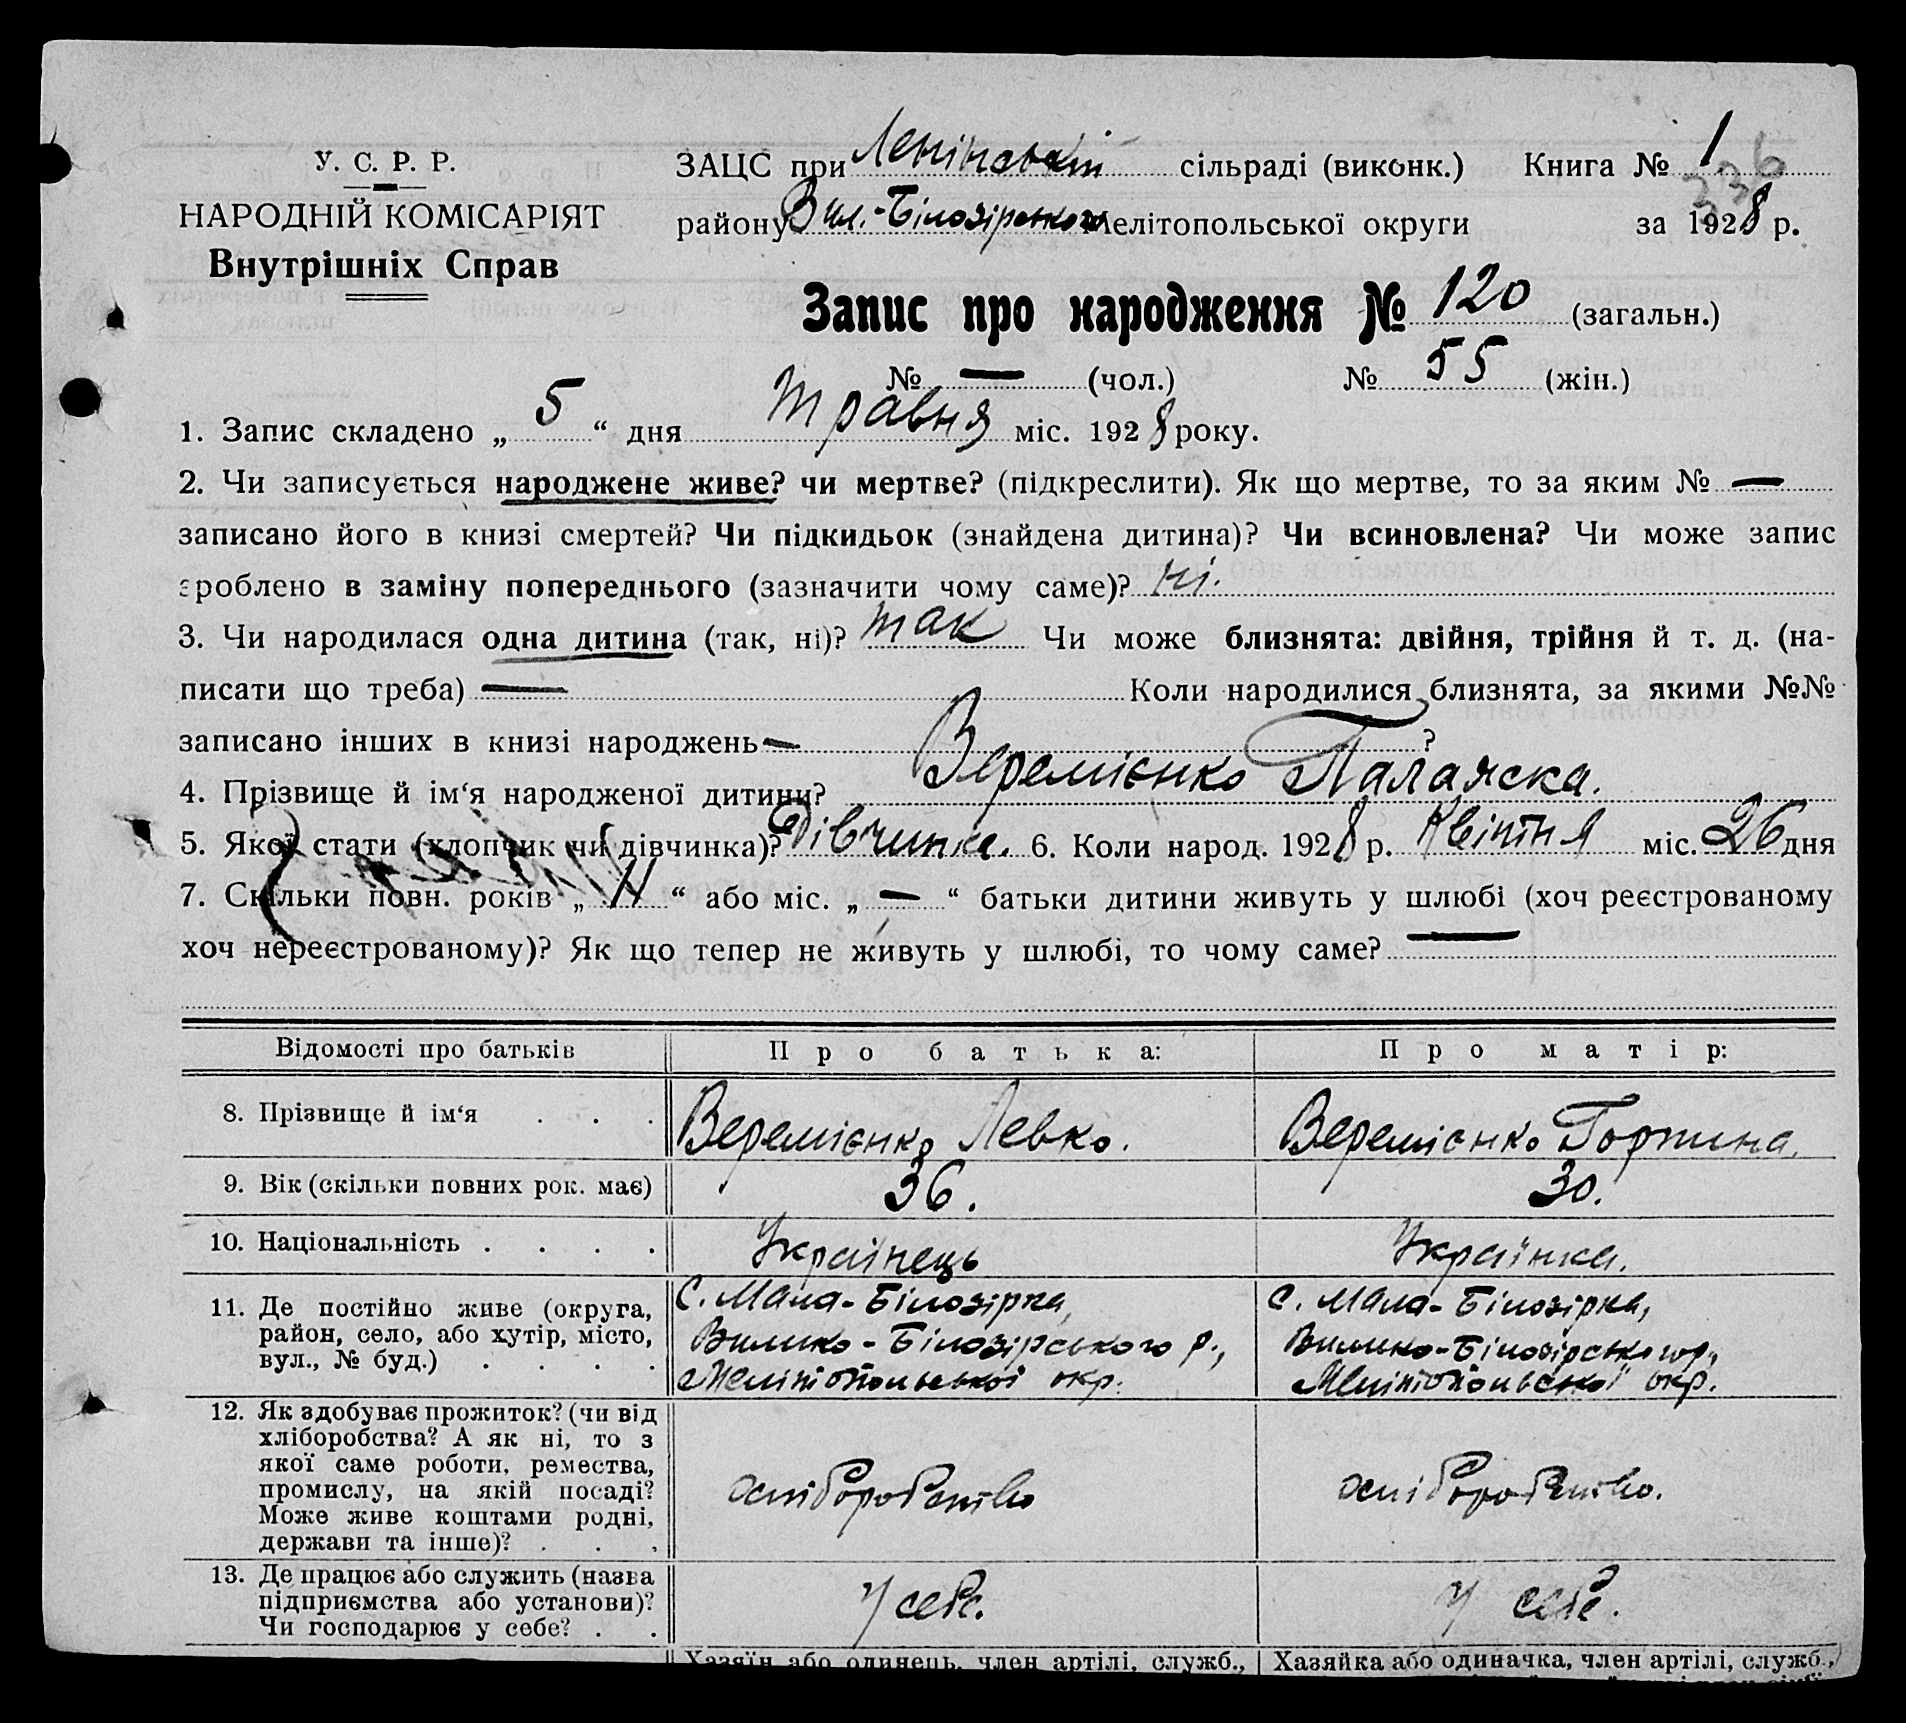 У. С. Р. Р.
НАРОДНІЙ КОМІСАРІЯТ
Внутрішніх Справ
ЗАЦС при Ленінській сільраді (виконк.) Книга № 1
336
району Вил.-Білозірського Мелітопольської округи за 1928 р.
Запис про народження № 120 (загальн.)
№ — (чол.) № 55 (жін.)
1. Запис складено „ 5 “ дня травня міс. 1928 року.
2. Чи записується народжене живе? чи мертве? (підкреслити). Як що мертве, то за яким № —
записано його в книзі смертей? Чи підкидьок (знайдена дитина)? Чи всиновлена? Чи може запис
зроблено в заміну попереднього (зазначити чому саме)? Ні.
3. Чи народилася одна дитина (так, ні)? так Чи може близнята: двійня, трійня й т. д. (на-
писати що треба) — Коли народилися близнята, за якими №№
записано інших в книзі народжень — ?
4. Прізвище й ім‘я народженої дитини? Веремієнко Палажка.
5. Якої стати (хлопчик чи дівчинка)? Дівчинка. 6. Коли народ. 1928 р. Квітня міс. 26 дня
7. Скільки повн. років „ 11 “ або міс. „ — “ батьки дитини живуть у шлюбі (хоч реєстрованому
хоч нереєстрованому)? Як що тепер не живуть у шлюбі, то чому саме? —
Відомості про батьків Про батька: Про матір:
8. Прізвище й ім‘я . . . Веремієнко Левко. Веремієнко Горпина.
9. Вік (скільки повних рок. має) 36. 30.
10. Національність . . . . Українець Українка.
11. Де постійно живе (округа,
район, село, або хутір, місто,
вул., № буд.) . . . .
С. Мала-Білозірка,
Вилико-Білозірського р.,
Мелітопольської окр.
с. Мала-Білозірка,
Вилико-Білозірського р.,
Мелітопольської окр.
12. Як здобуває прожиток? (чи від
хліборобства? А як ні, то з
якої саме роботи, ремества,
промислу, на якій посаді?
Може живе коштами родні,
держави та інше)? . . .
хліборобство
хліборобство.
13. Де працює або служить (назва
підприємства або установи)?
Чи господарює у себе? . .
У себе.
У себе.
Хазяїн або одинець, член артілі, служб., Хазяйка або одиначка, член артілі, служб.,